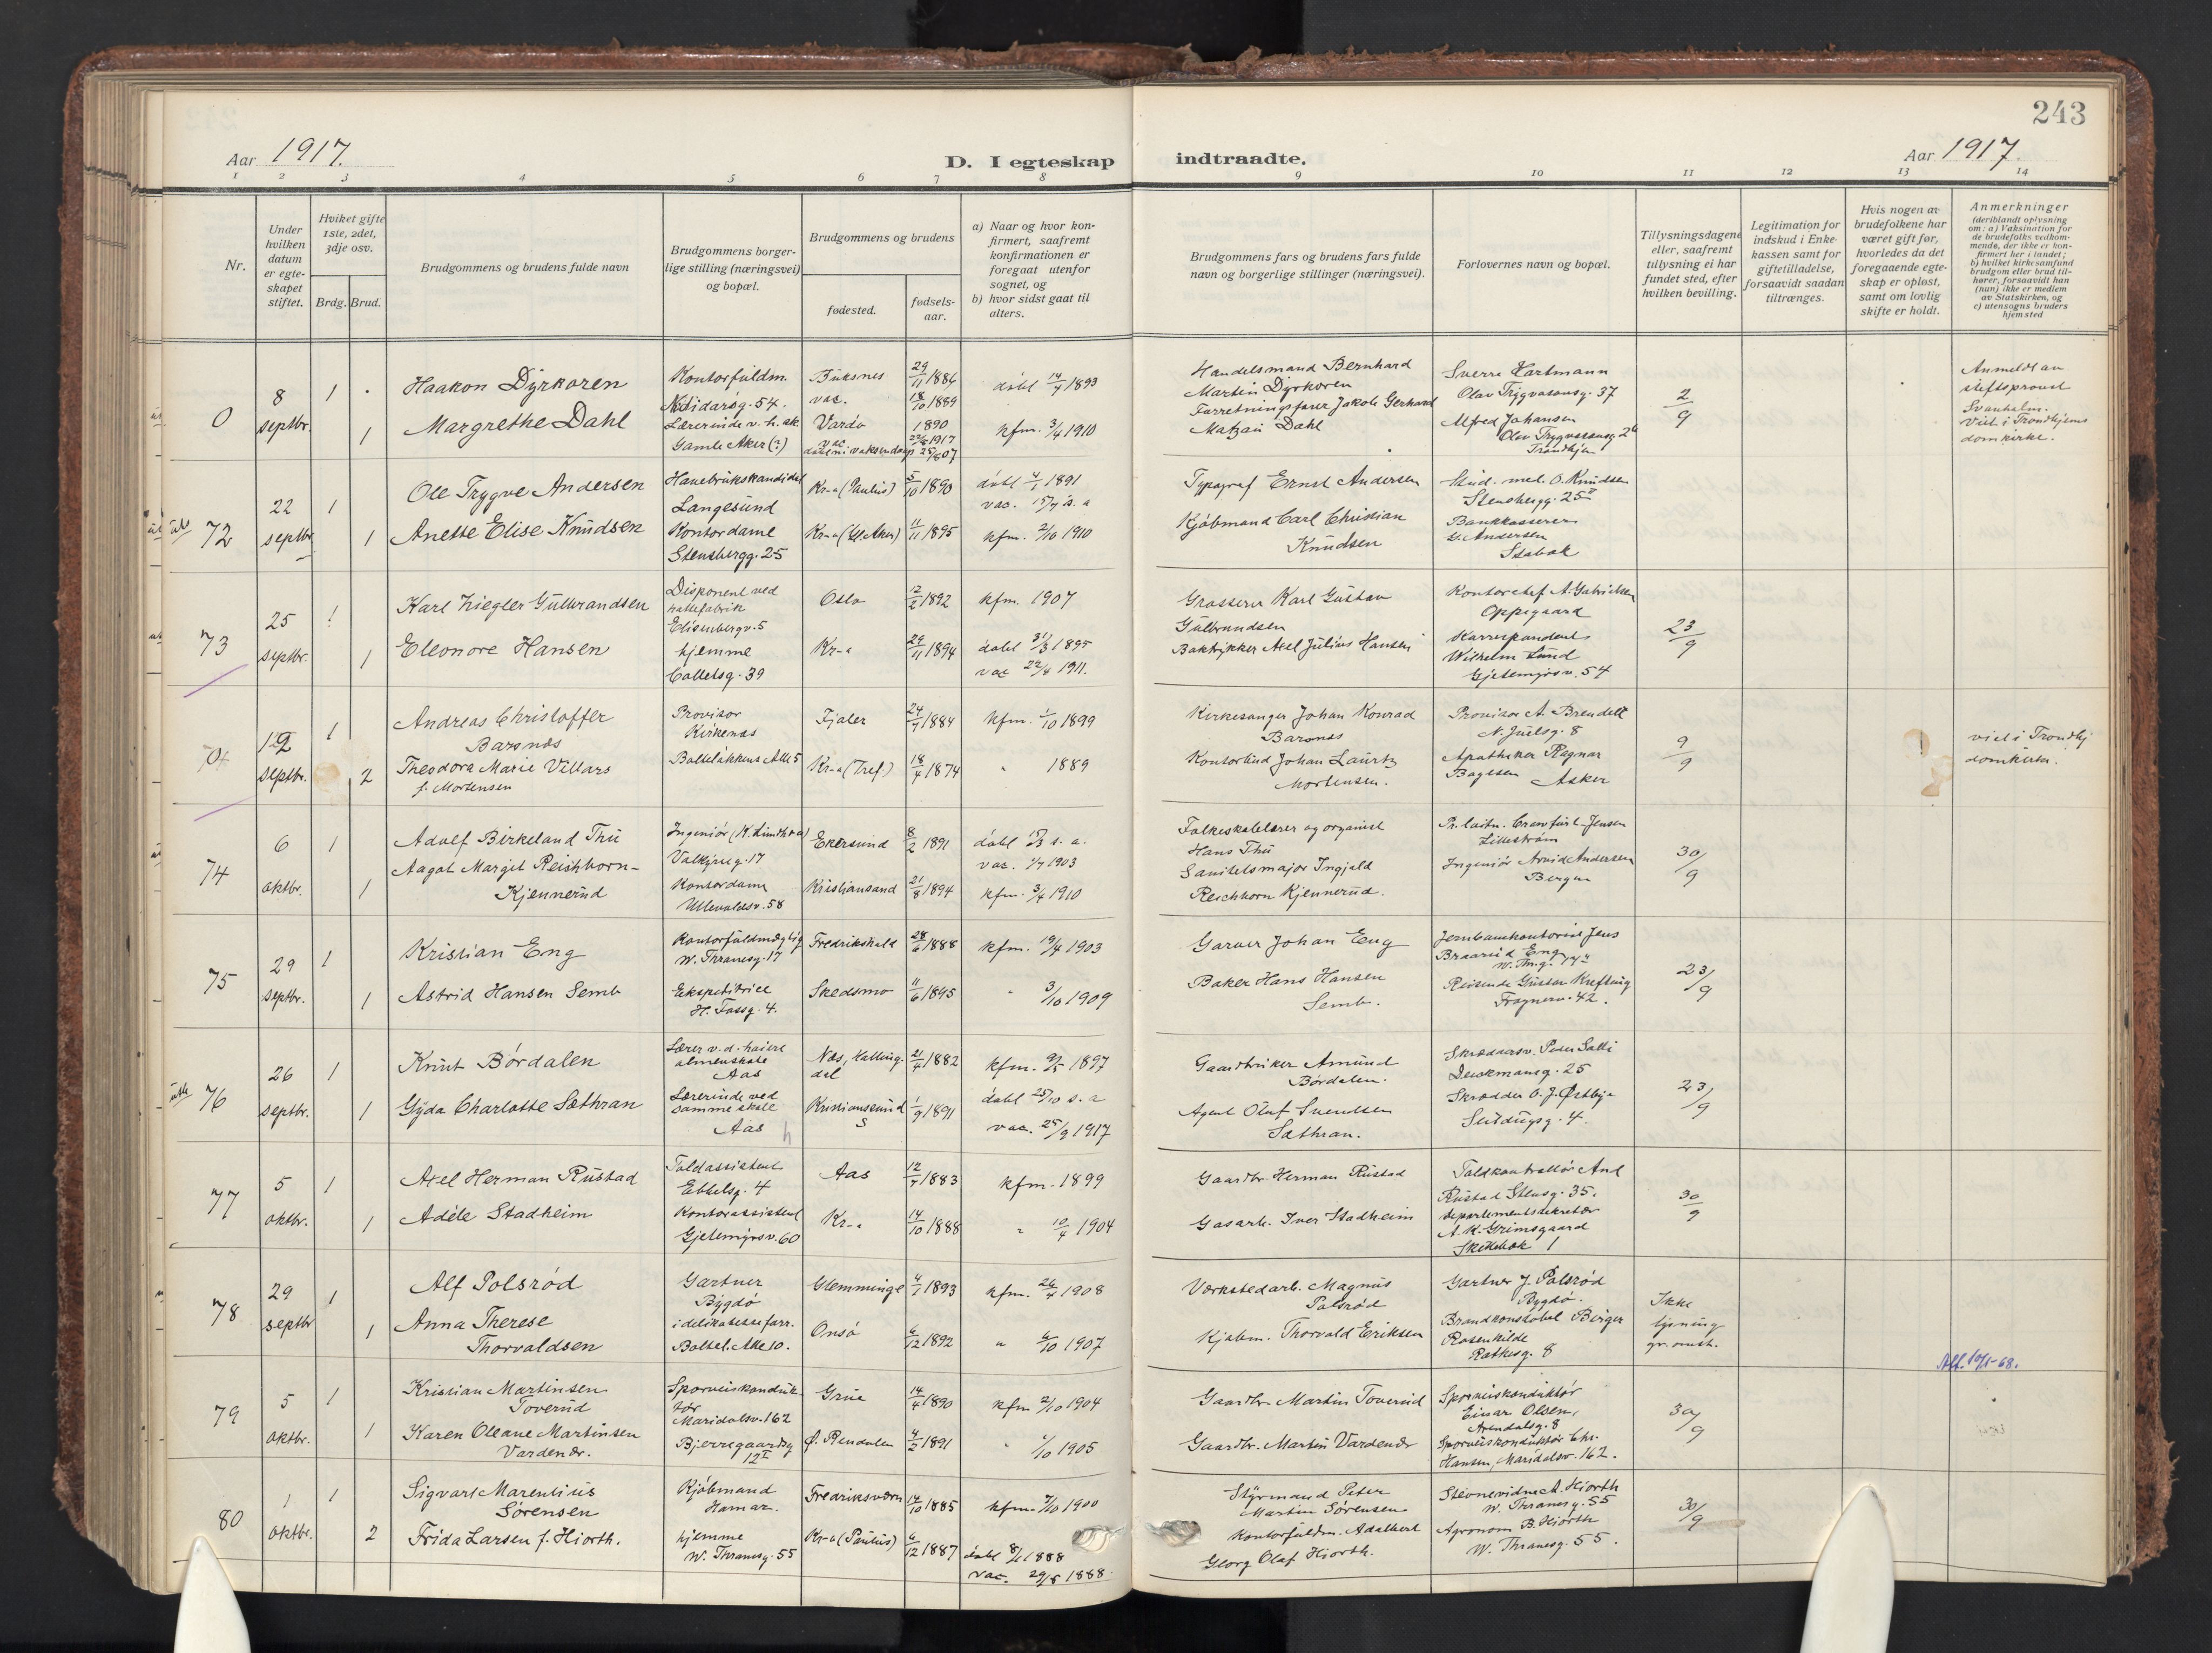 243
Aar 1917.
D. I egteskap indtraadte.
Aar 1917.
1 2 3 4 5 6 7 8 9 10 11 12 13 14
Nr.
Under
hvilken
datum
er egte-
skapet
stiftet.
Hviket gifte
1ste, 2det,
3dje osv.
Brdg. Brud.
Brudgommens og brudens fulde navn
Brudgommens borger-
lige stilling (næringsvei)
og bopæl.
Brudgommens og brudens
fødested.
fødsels-
aar.
a) Naar og hvor kon-
firmert, saafremt
konfirmationen er
foregaat utenfor
sognet, og
b) hvor sidst gaat til
alters.
Brudgommens fars og brudens fars fulde
navn og borgerlige stillinger (næringsvei).
Forlovernes navn og bopæl.
Tillysningsdagene
eller, saafremt
tillysning ei har
fundet sted, efter
hvilken bevilling.
Legitimation for
indskud i Enke-
kassen samt for
giftetilladelse,
forsaavidt saadan
tiltrænges.
Hvis nogen av
brudefolkene har
været gift før,
hvorledes da det
foregaaende egte-
skap er opløst,
samt om lovlig
skifte er holdt.
Anmerkninger
(deriblandt oplysning
om: a) Vaksination for
de brudefolks vedkom-
mende, der ikke er kon-
firmert her i landet;
b) hvilket kirkesamfund
brudgom eller brud til-
hører, forsaavidt han
(hun) ikke er medlem
av Statskirken, og
c) utensogns bruders
hjemsted
0
8
septbr.
1
1
Haakon Dyrkoren
Margrethe Dahl
Kontorfuldm.
Nidarosg. 54.
Lærerinde v. h. sk.
Gamle Aker (?)
Buksnes
vac.
Vardø
29/11 1886
18/10 1889
1890
døbt 14/7 1893
kfm. 3/4 1910
Handelsmand Bernhard
Martin Dyrkoren
Forretningsfører Jakob Gerhard
Matzau Dahl
Sverre Hartmann
Olav Trygvasonsg. 37
Alfred Johansen
Olav Trygvasonsg. 26
Trondhjem
2/9
Anmeldt av
stiftsprovst
Svanholm.
Viet i Trondhjems
domkirke.
72
22
septbr.
1
1
Ole Trygve Andersen
Anette Elise Knudsen
Langesund
Kontordame
Stensbergg. 25
Kr-a (Paulus)
Kr-a (Gl. Aker)
5/10 1890
11/11 1895
døbt 4/1 1891
vac. 15/7 s. a
kfm. 2/10 1910
Typograf Ernst Andersen
Kjøbmand Carl Christian
Knudsen
Stud. med. O. Knudsen
Stensbergg. 25 II
Bankkasserer
G. Andersen
Stabæk
73
25
septbr.
1
1
Karl Ziegler Gulbrandsen
Eleonore Hansen
Disponent ved
hattefabrik
Elisenbergv. 5
hjemme
Colletsg. 39
Oslo
Kr-a
12/2 1892
29/11 1894
kfm. 1907
døbt 31/3 1895
vac 22/4 1911.
Grosserer Karl Gustav
Gulbrandsen
Boktrykker Axel Julius Hansen
Kontorchef A. Gabrielsen
Oppegaard
Korrespondent
Wilhelm Lund
Gjetemyrsv. 54
23/9
12
septbr.
1
2
Andreas Christoffer
Barsnes
Theodora Marie Villars
f. Mortensen
Provisor
Kirkenes
Bolteløkkens Allé 5
Fjaler
Kr-a (Tref.)
24/7 1884
18/4 1874
kfm. 1/10 1899
" 1889
Kirkesanger Johan Konrad
Barsnes
Kontorbud Johan Lauritz
Mortensen.
Provisor A. Brendell
N. Juelsg. 8
Apotheker Ragnar
Bagesen Asker
9/9
viet i Trondhj
domkirke.
74
6
oktbr.
1
1
Adolf Birkeland Thu
Aagot Margit Reichborn-
Kjennerud
Valkyrieg. 17
Kontordame
Ullevoldsv. 58
Ekersund
Kristiansand
8/2 1891
21/8 1894
døbt 15/3 s. a.
vac. 1/7 1903
kfm. 3/4 1910
Folkeskolelærer og organist
Hans Thu
Sanitetsmajor Ingjald
Reichborn Kjennerud.
Pr. løitn. Crawfurt-Jensen
Lillestrøm
Ingeniør Arvid Andersen
Bergen
30/9
75
29
septbr.
1
1
Kristian Eng
Astrid Hansen Semb
Kontorfuldmægtig
W. Thranesg. 17
Ekspeditrice
H. Fossg. 4.
Fredrikshald
Skedsmo
28/6 1888
11/6 1895
kfm. 19/4 1903
" 3/10 1909
Garver Johan Eng
Baker Hans Hansen
Semb.
Jernbanekontorist Jens
Braarud Eng
W. Thr.g. 17 II
Reisende Gustav Krefting
Frognerv. 42.
23/9
76
26
septbr.
1
1
Knut Børdalen
Gyda Charlotte Sæthran
Lærer v. d. høiere
almenskole
Aas
Lærerinde ved
samme skole
Aas
Næs, Halling-
dal
Kristiansund
S
21/4 1882
1/9 1891
kfm. 9/5 1897
døbt 25/10 s. a
vac. 25/9 1917
Gaardbruker Amund
Børdalen.
Agent Oluf Svendsen
Sæthran.
Skræddersv. Peder Solli
Deichmansg. 25
Skrædder O. J. Østbye
Seilduksg. 4.
23/9
77
5
oktbr.
1
1
Axel Herman Rustad
Adèle Stadheim
Toldassistent
Ebbelsg. 4
Kontorassistent
Gjetemyrsv. 60
Aas
Kr-a
12/7 1883
14/10 1888
kfm. 1899
" 10/4 1904
Gaardbr. Herman Rustad
Gasarb. Iver Stadheim
Toldkontrollør Ant
Rustad Stensg. 35.
departementssekretær
A. K. Grimsgaard
Skillebæk 1
30/9
78
29
septbr
1
1
Alf Polsrød
Anna Therese
Thorvaldsen
Gartner
Bygdø
i delikatesseforr.
Boltel. Alle 10.
Glemminge
Onsø
4/1 1893
6/12 1892
kfm. 26/4 1908
" 6/10 1907
Verkstedarb. Magnus
Polsrød
Kjøbm. Thorvald Eriksen
Gartner J. Polsrød
Bygdø.
Brandkonstabel Birger
Rosenkilde
Rathkesg. 8
Ikke
lysning
gr. omst.
79
5
oktbr.
1
1
Kristian Martinsen
Toverud
Karen Oleane Martinsen
Vardenær.
Sporveiskonduk-
tør
Maridalsv. 162
Bjerregaardsg
12 I
Grue
Ø. Rendalen
14/4 1890
4/2 1891
kfm 2/10 1904
" 1/10 1905
Gaardbr. Martin Toverud
Gaardbr. Martin Vardenær
Sporveiskonduktør
Einar Olsen,
Arendalsg. 8
Sporveiskonduktør Chr.
Hansen, Maridalsv. 162.
30/9
Att. 10/1-68.
80
1
oktbr.
1
2
Sigvart Marentius
Sørensen
Frida Larsen f. Hiorth.
Kjøbmand
Hamar.
hjemme
W. Thranesg. 55
Fredriksværn
Kr-a (Paulus)
14/10 1885
6/12 1887
kfm. 7/10 1900
døbt 8/1 1888
vac. 29/5 1888.
Styrmand Peter
Martin Sørensen
Kontorfuldm. Adalbert
Georg Olaf Hiorth.
Stevnevidne A. Hiorth
W. Thranesg. 55
Agronom B. Hiorth
W. Thranesg. 55.
30/9